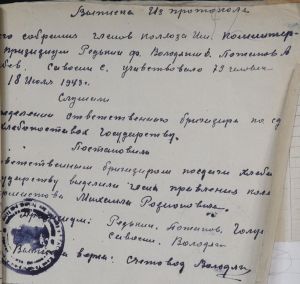 Выписка Из протокола
го собрания членов колхоза Им. Коминтер-
президиум Редькин ф. Володин д. Пожинов А
бев. Сивосин С. учавствовало 73 человек
18 Июля 1943 г.
Слушали
делении ответственного бригадира по сд
хлебопоставок Государству.
Постановили
ветственным бригадиром посдачи хлеба
сударству выделили члена правления колх
Михаила
Президиум: Редькин. Пожинов. Голу
Сивосин. Володин
Выписка верна: Счетовод Володин